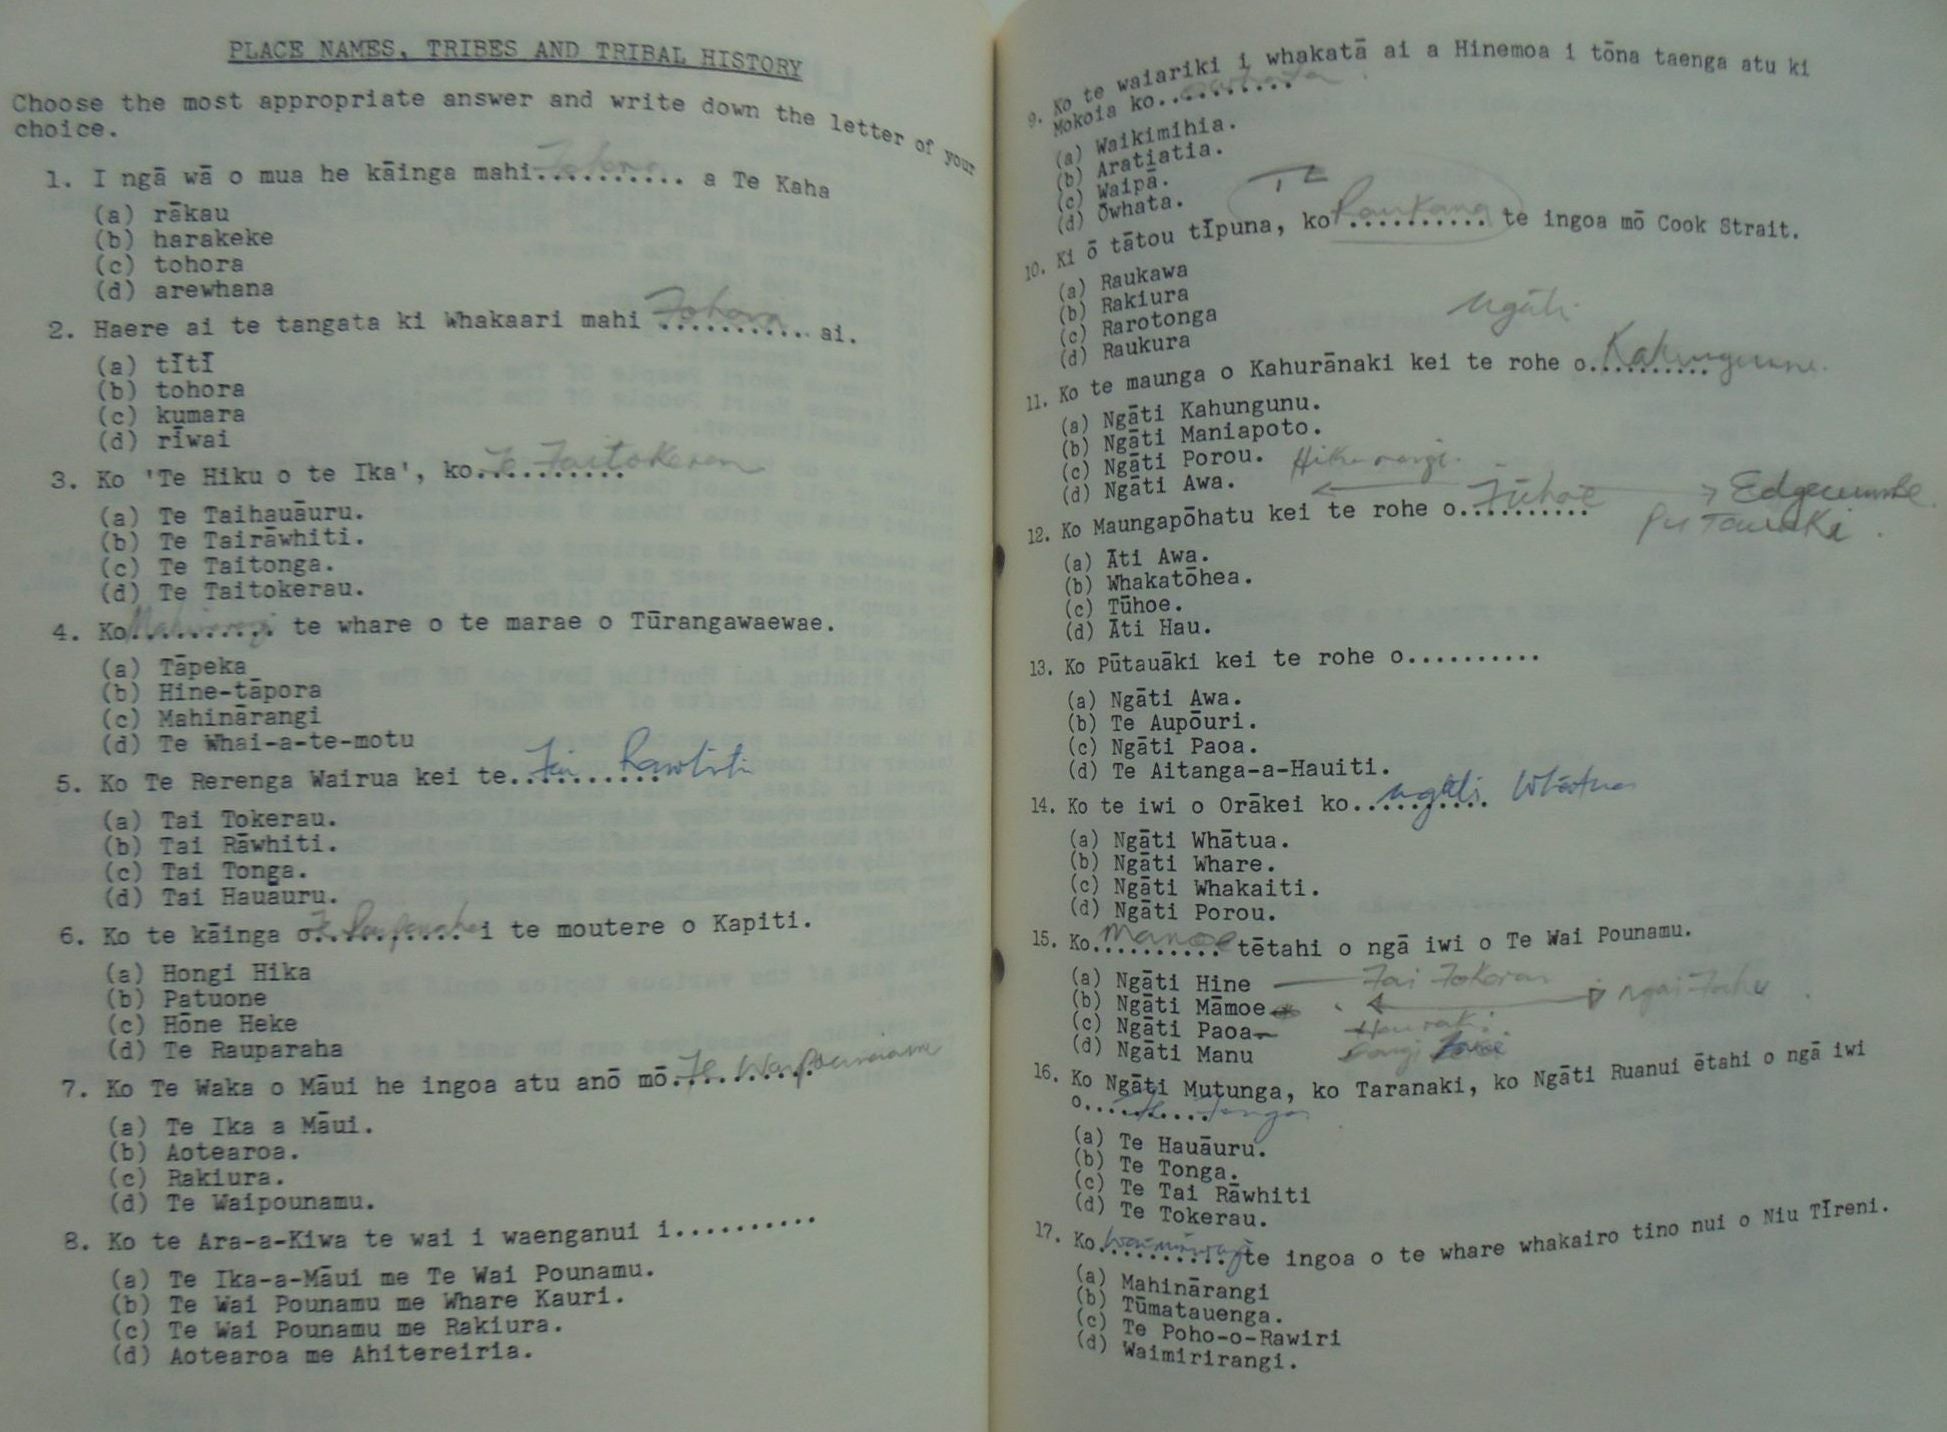 PLACE NAMES, TRIBES AND TRIBAL HISTORY
Choose the most appropriate answer and write down the letter of your
choice.
1. I ngā wā o mua he kāinga mahi.......... a Te Kaha
Tohora
(a) rākau
(b) harakeke
(c) tohora
(d) arewhana
2. Haere ai te tangata ki Whakaari mahi .......... ai.
Tohora
(a) tītī
(b) tohora
(c) kumara
(d) rīwai
3. Ko 'Te Hiku o te Ika', ko..........
Te Taitokerau
(a) Te Taihauāuru.
(b) Te Tairāwhiti.
(c) Te Taitonga.
(d) Te Taitokerau.
4. Ko.......... te whare o te marae o Tūrangawaewae.
Mahinarangi
(a) Tāpeka
(b) Hine-tāpora
(c) Mahinārangi
(d) Te Whai-a-te-motu
5. Ko Te Rerenga Wairua kei te..........
Tai Rawhiti
(a) Tai Tokerau.
(b) Tai Rāwhiti.
(c) Tai Tonga.
(d) Tai Hauāuru.
6. Ko te kāinga o.......... i te moutere o Kapiti.
Te Rauparaha
(a) Hongi Hika
(b) Patuone
(c) Hōne Heke
(d) Te Rauparaha
7. Ko Te Waka o Māui he ingoa atu anō mō..........
Te Waipounamu
(a) Te Ika a Māui.
(b) Aotearoa.
(c) Rakiura.
(d) Te Waipounamu.
8. Ko te Ara-a-Kiwa te wai i waenganui i..........
(a) Te Ika-a-Māui me Te Wai Pounamu.
(b) Te Wai Pounamu me Whare Kauri.
(c) Te Wai Pounamu me Rakiura.
(d) Aotearoa me Ahitereiria.
9. Ko te waiariki i whakatā ai a Hinemoa i tōna taenga atu ki
Mokoia ko..........
Owhata
(a) Waikimihia.
(b) Aratiatia.
(c) Waipā.
(d) Ōwhata.
10. Ki ō tātou tīpuna, ko .......... te ingoa mō Cook Strait.
Raukawa
(a) Raukawa
(b) Rakiura
(c) Rarotonga
(d) Raukura
Ngāti
11. Ko te maunga o Kahurānaki kei te rohe o..........
Kahungunu.
(a) Ngāti Kahungunu.
(b) Ngāti Maniapoto.
(c) Ngāti Porou. Hikurangi.
(d) Ngāti Awa.
12. Ko Maungapōhatu kei te rohe o..........
Tūhoe Edgecumbe
Putauaki
(a) Āti Awa.
(b) Whakatōhea.
(c) Tūhoe.
(d) Āti Hau.
13. Ko Pūtauāki kei te rohe o..........
(a) Ngāti Awa.
(b) Te Aupōuri.
(c) Ngāti Paoa.
(d) Te Aitanga-a-Hauiti.
14. Ko te iwi o Orākei ko..........
Ngāti Whātua
(a) Ngāti Whātua.
(b) Ngāti Whare.
(c) Ngāti Whakaiti.
(d) Ngāti Porou.
15. Ko.......... tētahi o ngā iwi o Te Wai Pounamu.
Mamoe
(a) Ngāti Hine Tai Tokerau
(b) Ngāti Māmoe Ngai Tahu
(c) Ngāti Paoa Hauraki
(d) Ngāti Manu
16. Ko Ngāti Mutunga, ko Taranaki, ko Ngāti Ruanui ētahi o ngā iwi
o..........
Te Tonga
(a) Te Hauāuru.
(b) Te Tonga.
(c) Te Tai Rāwhiti
(d) Te Tokerau.
17. Ko.......... te ingoa o te whare whakairo tino nui o Niu Tīreni.
(a) Mahinārangi
(b) Tūmatauenga.
(c) Te Poho-o-Rawiri
(d) Waimirirangi.